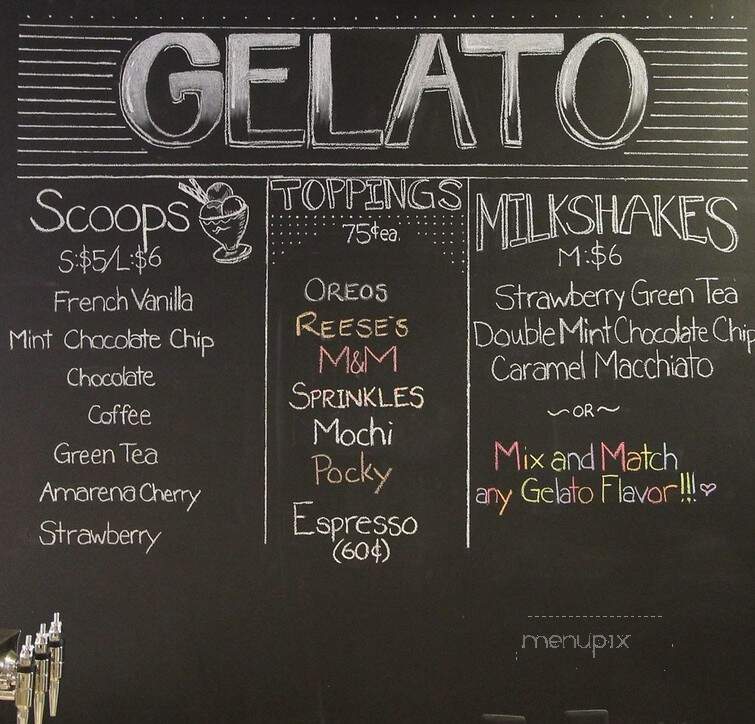 GELATO
Scoops
S:$5/L:$6
French Vanilla
Mint Chocolate Chip
Chocolate
Coffee
Green Tea
Amarena Cherry
Strawberry
TOPPINGS
75¢ea.
OREOS
REESE'S
M&M
SPRINKLES
Mochi
Pocky
Espresso
(60¢)
MILKSHAKES
M:$6
Strawberry Green Tea
Double Mint Chocolate Chip
Caramel Macchiato
~OR~
Mix and Match
any Gelato Flavor!!!♡
menupix